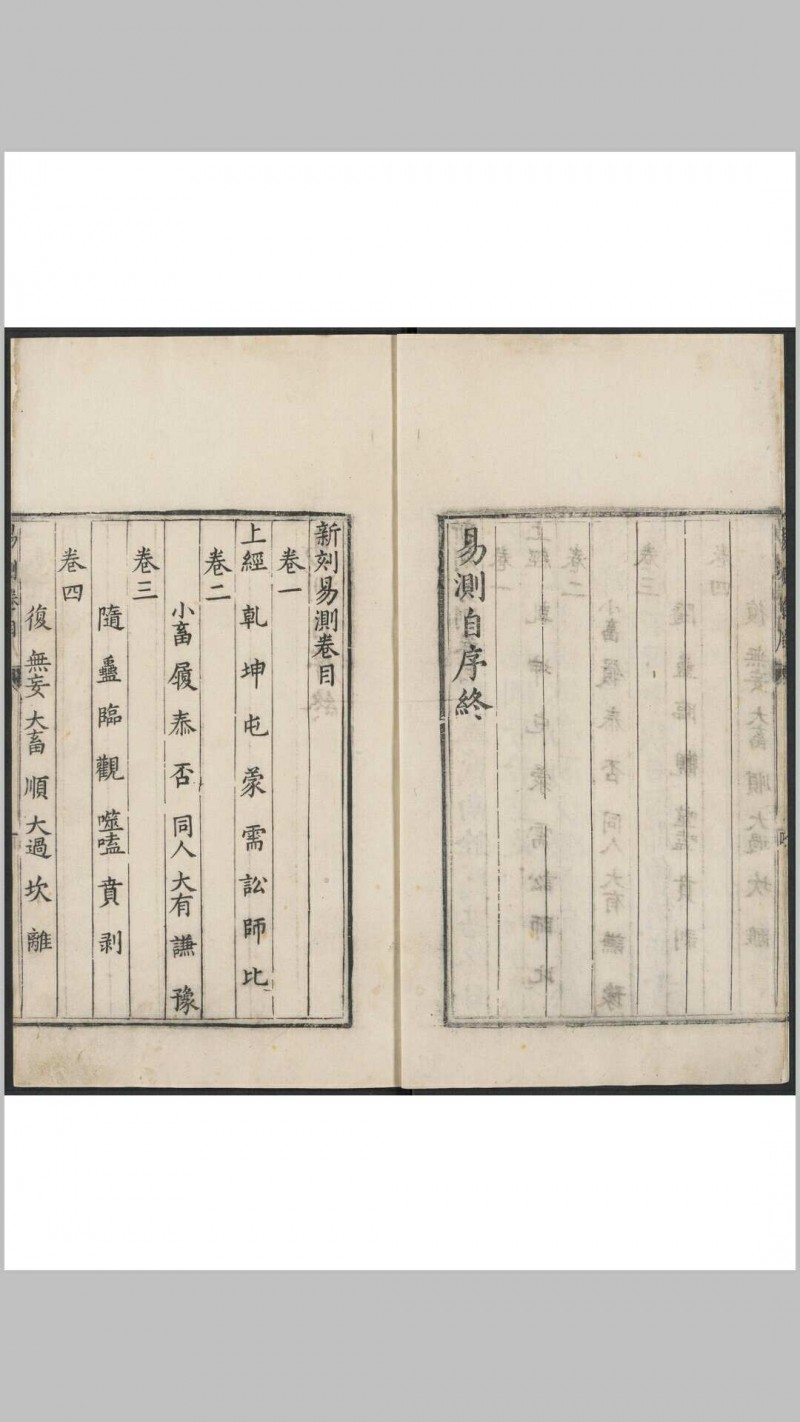 易測自序終
新刻易測卷目
卷一
上經 乾 坤 屯 蒙 需 訟 師 比
卷二
小畜 履 泰 否 同人 大有 謙 豫
卷三
隨 蠱 臨 觀 噬嗑 賁 剥
卷四
復 無妄 大畜 順 大過 坎 離